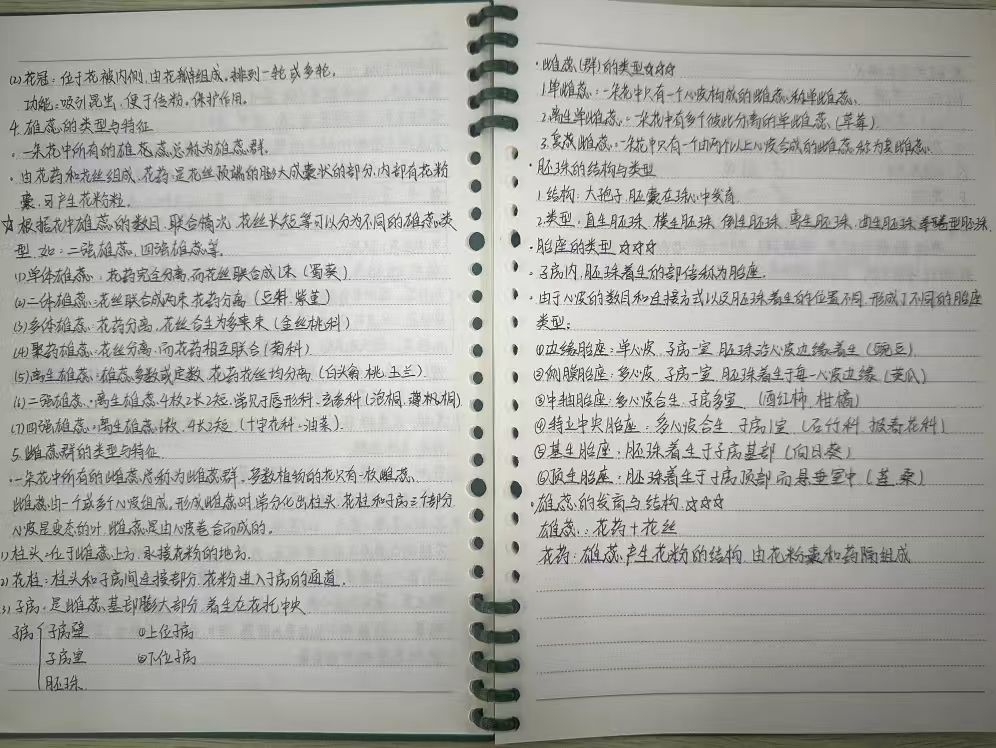 (2)花冠：位于花被内侧，由花瓣组成，排列一轮或多轮。
功能：吸引昆虫，便于传粉，保护作用。
4.雄蕊的类型与特征
·一朵花中所有的雄花蕊总称为雄蕊群。
·由花药和花丝组成，花药：是花丝顶端的膨大成囊状的部分，内部有花粉
囊，可产生花粉粒。
☆根据花中雄蕊的数目，联合情况，花丝长短等可以分为不同的雄蕊类
型，如：二强雄蕊，四强雄蕊等。
(1)单体雄蕊：花药完全分离，而花丝联合成1束（蜀葵）
(2)二体雄蕊：花丝联合成两束，花药分离（豆科，紫堇）
(3)多体雄蕊：花药分离，花丝合生为多束（金丝桃科）
(4)聚药雄蕊：花丝分离，而花药相互联合（菊科）
(5)离生雄蕊：雄蕊多数或定数，花药花丝均分离（白头翁，桃，玉兰）
(6)二强雄蕊：离生雄蕊，4枚2长2短，常见于唇形科，玄参科（泡桐）
(7)四强雄蕊：离生雄蕊6枚，4长2短（十字花科：油菜）
5.雌蕊群的类型与特征
·一朵花中所有的雌蕊总称为雌蕊群，多数植物的花只有一枚雌蕊
雌蕊由一个或多个心皮组成，形成雌蕊时，常分化出柱头，花柱和子房三个部分
心皮是变态的叶，雌蕊是由心皮卷合而成的。
1)柱头：位于雌蕊上方，承接花粉的地方。
2)花柱：柱头和子房间连接部分，花粉进入子房的通道。
3)子房：是雌蕊基部膨大部分，着生在花托中央
子房{子房壁 ①上位子房
子房室 ②下位子房
胚珠
·雌蕊(群)的类型☆☆☆
1.单雌蕊：一朵花中只有一个心皮构成的雌蕊，称单雌蕊。
2.离生单雌蕊：一朵花中有多个彼此分离的单雌蕊（草莓）
3.复雌蕊：一朵花中只有一个由两个以上心皮合成的雌蕊，称为复雌蕊。
·胚珠的结构与类型
1.结构：大孢子，胚囊在珠心中发育
2.类型：直生胚珠，横生胚珠，倒生胚珠，弯生胚珠，曲生胚珠
·胎座的类型☆☆☆
·子房内，胚珠着生的部位称为胎座
·由于心皮的数目和连接方式以及胚珠着生的位置不同，形成了不同的胎座
类型：
①边缘胎座：单心皮，子房一室，胚珠沿心皮边缘着生（豌豆）
②侧膜胎座：多心皮，子房一室，胚珠着生于每一心皮边缘（黄瓜）
③中轴胎座：多心皮合生，子房多室，（西红柿，柑橘）
④特立中央胎座：多心皮合生，子房1室（石竹科，报春花科）
⑤基生胎座：胚珠着生于子房基部（向日葵）
⑥顶生胎座：胚珠着生于子房顶部而悬垂室中（桑）
·雄蕊的发育与结构☆☆☆
雄蕊：花药+花丝
花药：雄蕊产生花粉的结构，由花粉囊和药隔组成